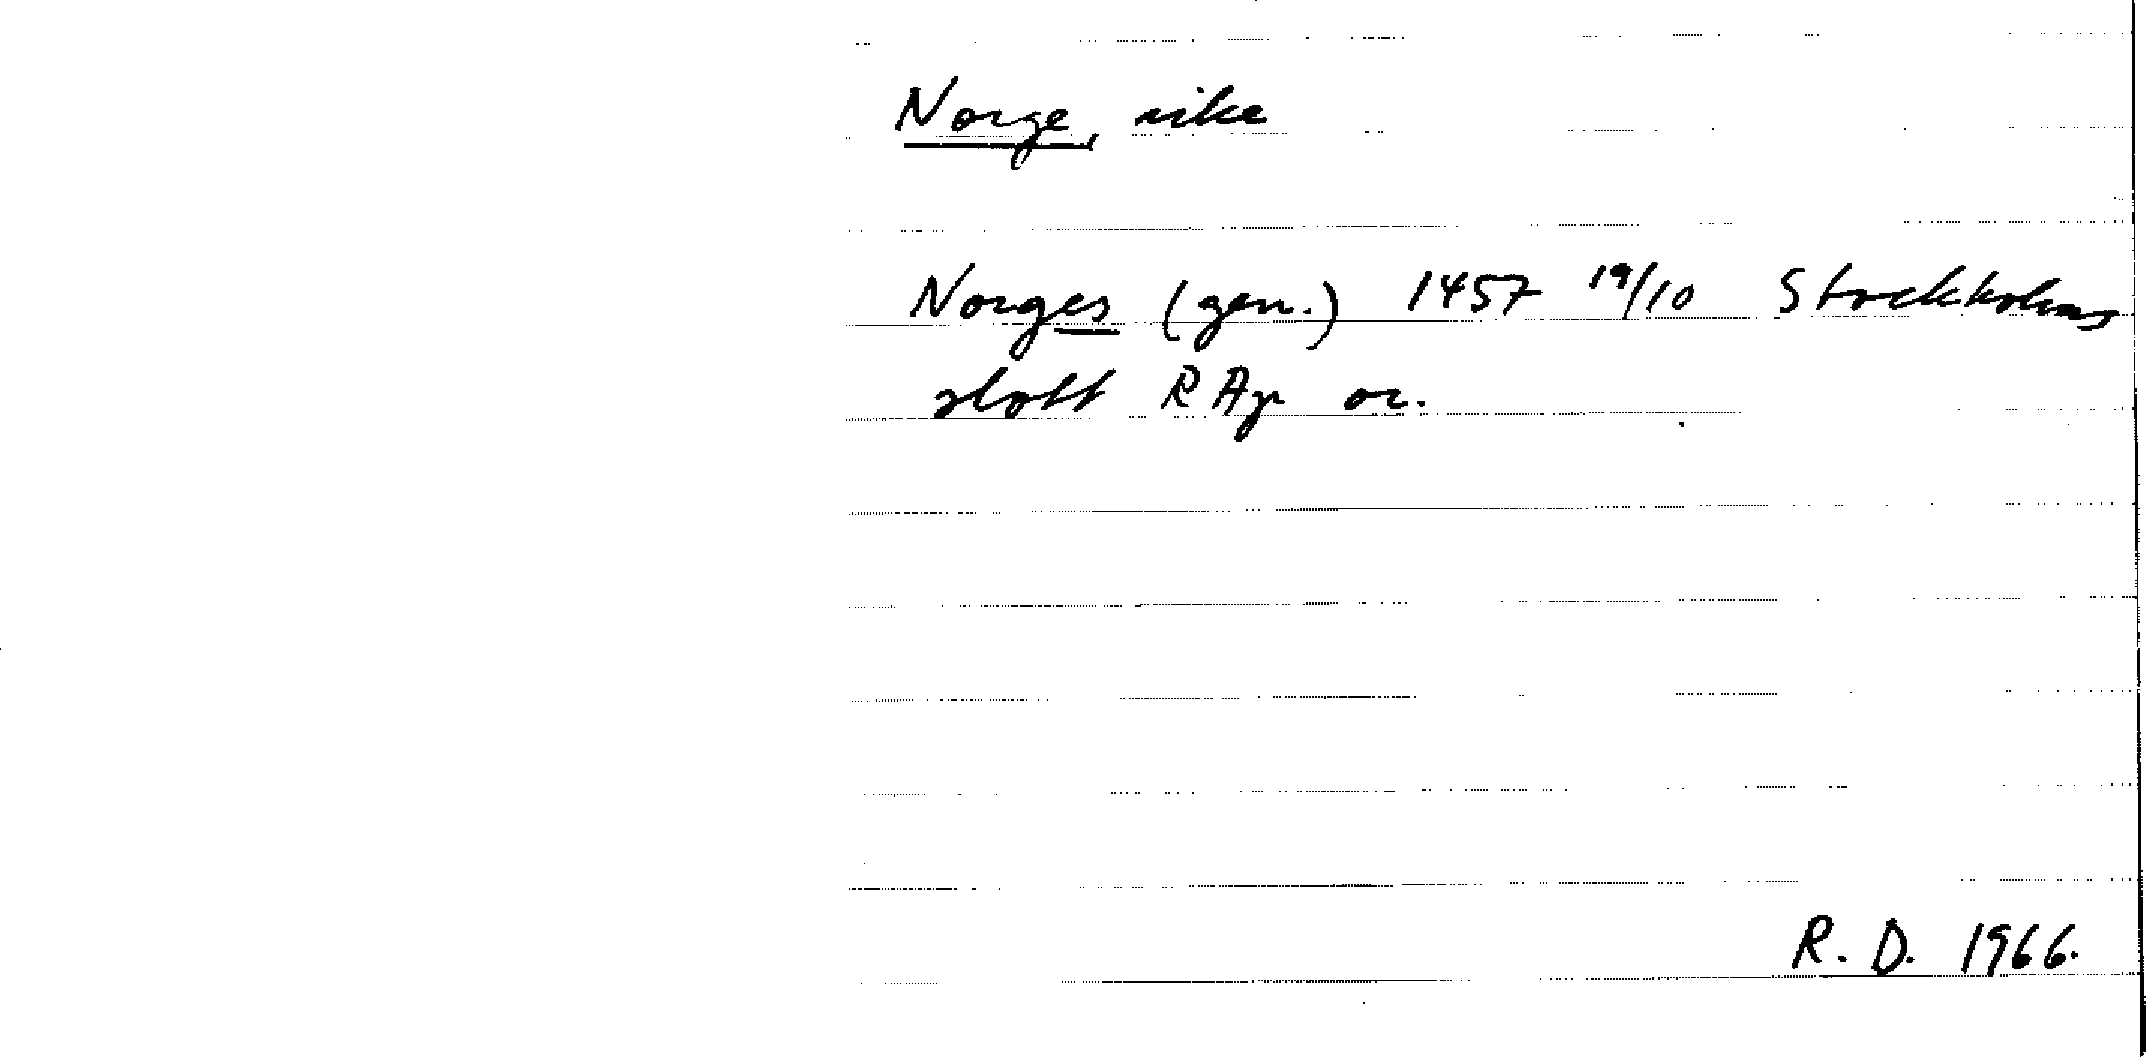 Norge, rike
Norges (gen.) 1457 19/10 Stockholms
slott RAp or.
R. D. 1966.